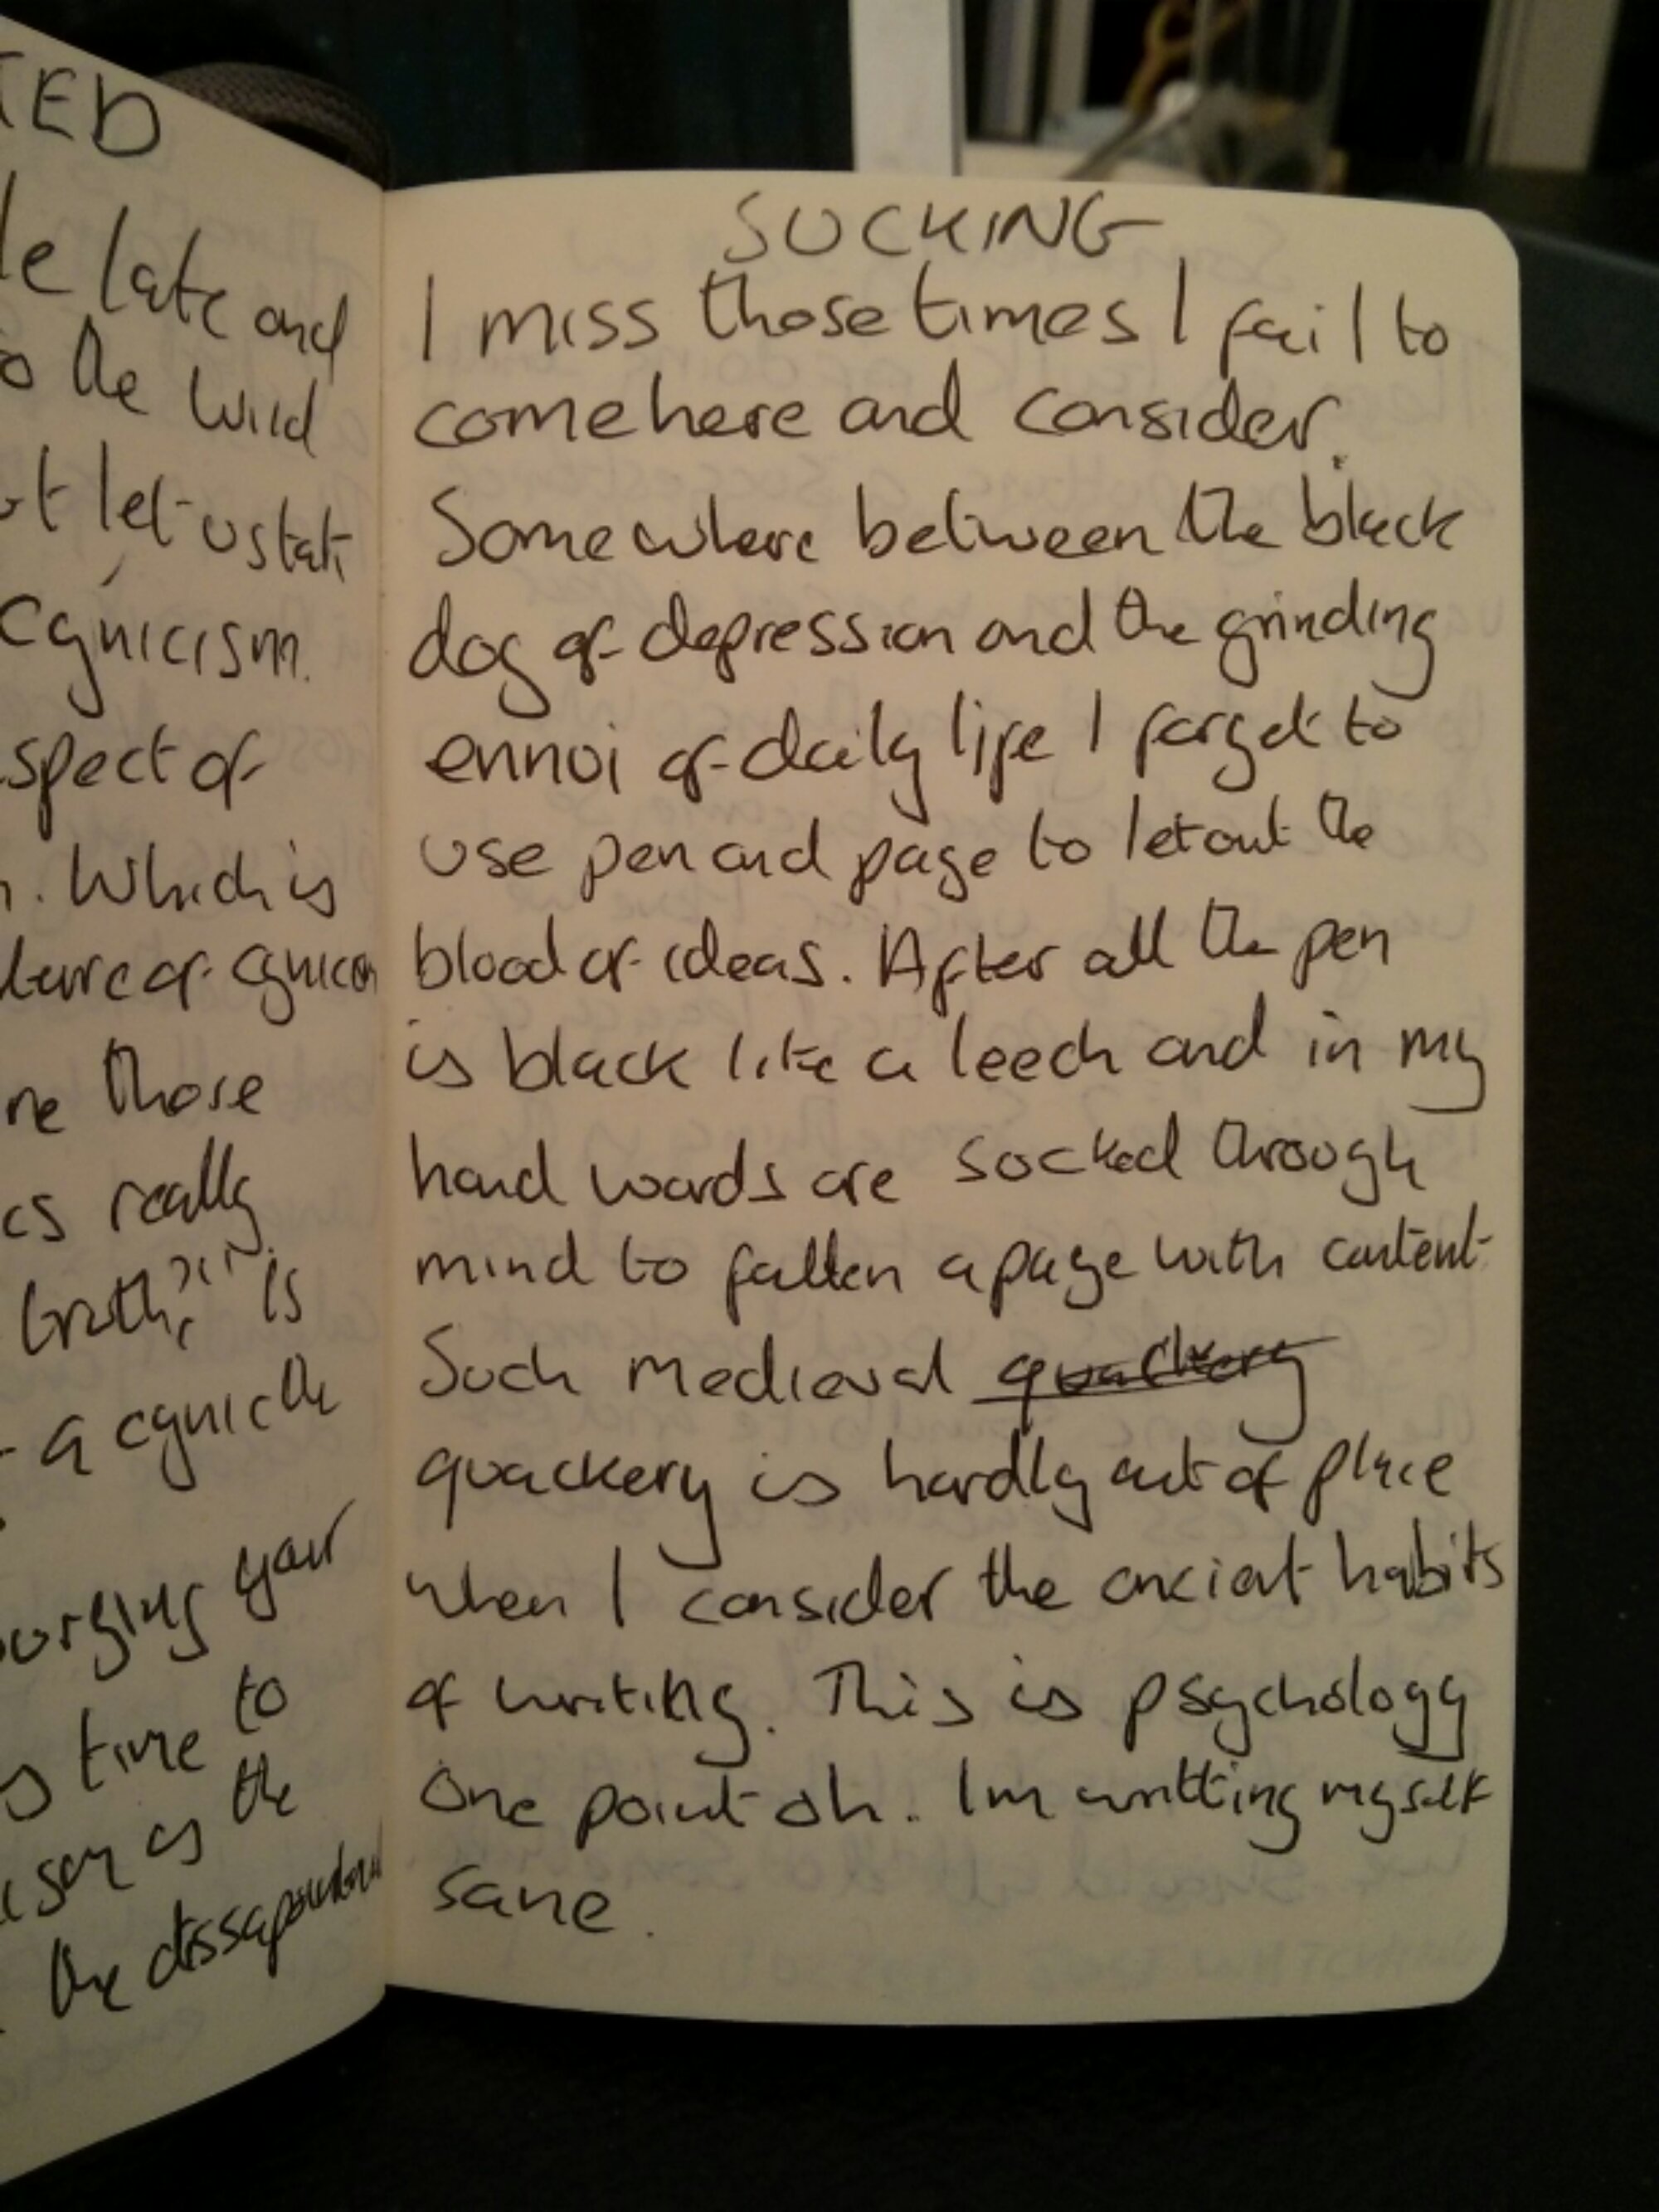 TED
le late and
o the wild
let us tak
cynicism.
spect of
. Which is
of cynicism
re those
cs really
truth?" is
- a cynic the
your
time to
as the
the dissapointed
SUCKING
I miss those times I fail to
come here and consider.
Somewhere between the black
dog of depression and the grinding
ennui of daily life I forget to
use pen and page to let out the
blood of ideas. After all the pen
is black like a leech and in my
hand words are sucked through
mind to fatten a page with content
Such medieval quackery
quackery is hardly out of place
when I consider the ancient habits
of writing. This is psychology
one point oh. Im writting myself
sane.